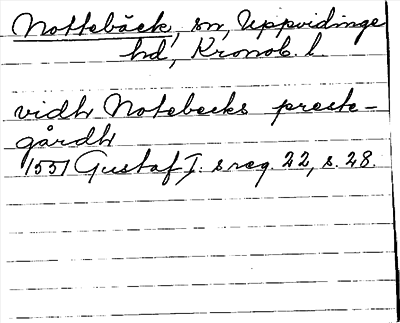 Nottebäck, sn, Uppvidinge
hd, Kronob. l.
vidh Notebecks preste-
gårdh
1551 Gustaf I:s reg. 22, s. 28.